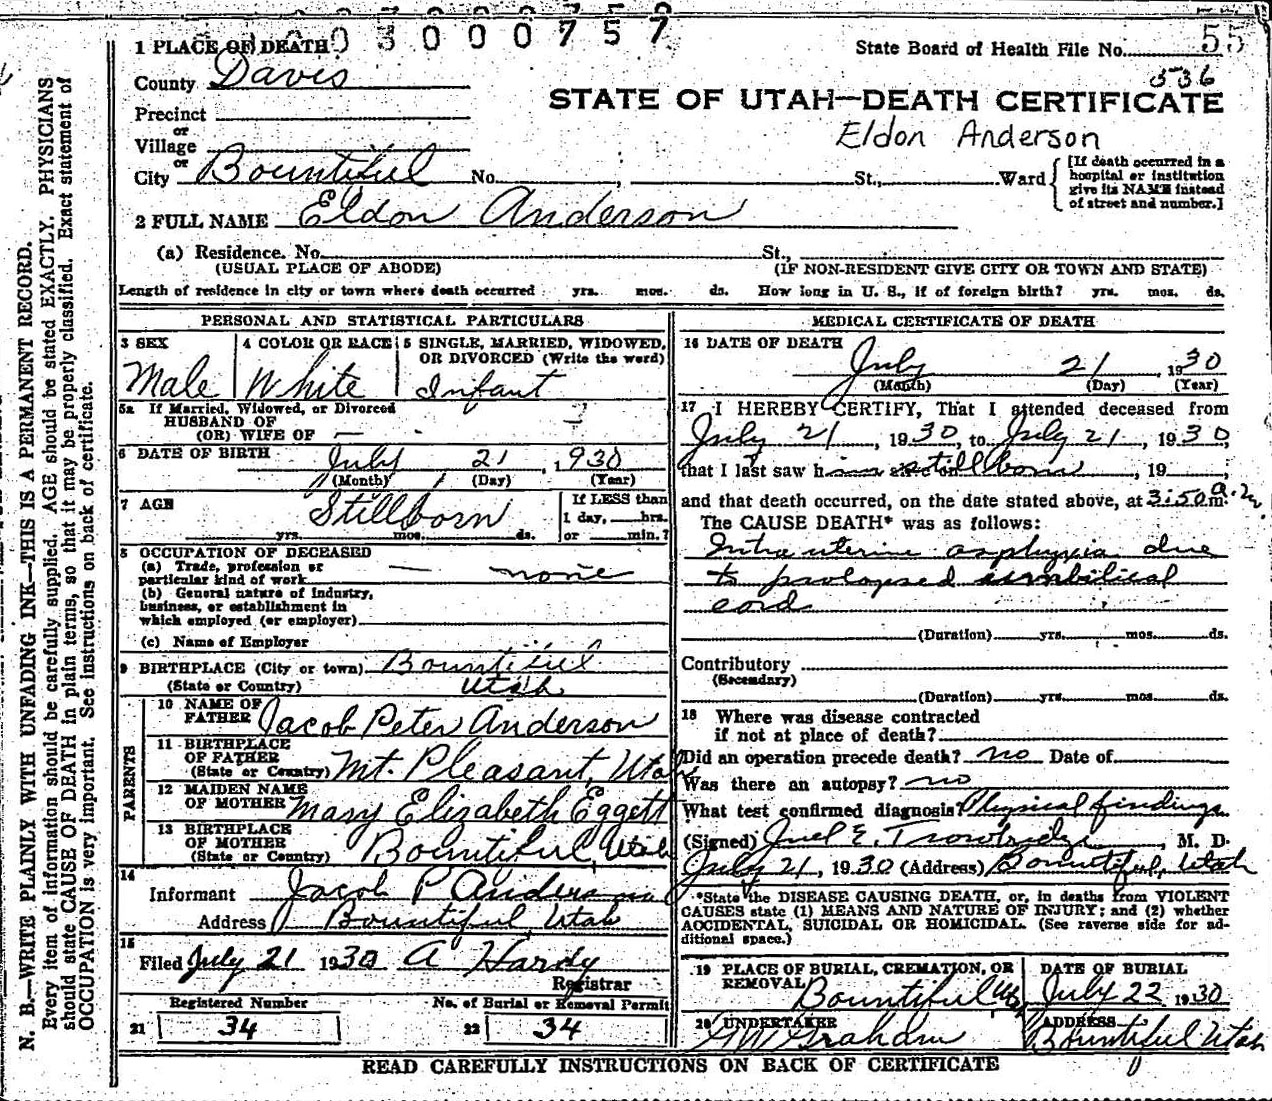 0 3 0 0 0 7 5 7
1 PLACE OF DEATH
State Board of Health File No. 55
County Davis
536
STATE OF UTAH—DEATH CERTIFICATE
Precinct
or
Village
Eldon Anderson
or
City Bountiful No. , St., Ward
[If death occurred in a
hospital or institution
give its NAME instead
of street and number.]
2 FULL NAME Eldon Anderson
(a) Residence. No. St.,
(USUAL PLACE OF ABODE) (IF NON-RESIDENT GIVE CITY OR TOWN AND STATE)
Length of residence in city or town where death occurred yrs. mos. ds. How long in U. S., if of foreign birth? yrs. mos. ds.
PERSONAL AND STATISTICAL PARTICULARS
3 SEX 4 COLOR OR RACE 5 SINGLE, MARRIED, WIDOWED,
OR DIVORCED (Write the word)
Male White Infant
5a If Married, Widowed, or Divorced
HUSBAND OF
(OR) WIFE OF —
6 DATE OF BIRTH July 21, 1930
(Month) (Day) (Year)
7 AGE Stillborn
yrs. mos. ds.
If LESS than
1 day, hrs.
or min.?
8 OCCUPATION OF DECEASED
(a) Trade, profession or
particular kind of work — none
(b) General nature of industry,
business, or establishment in
which employed (or employer)
(c) Name of Employer
9 BIRTHPLACE (City or town) Bountiful
(State or Country) Utah
PARENTS
10 NAME OF
FATHER Jacob Peter Anderson
11 BIRTHPLACE
OF FATHER
(State or Country) Mt. Pleasant, Utah
12 MAIDEN NAME
OF MOTHER Mary Elizabeth Eggett
13 BIRTHPLACE
OF MOTHER
(State or Country) Bountiful, Utah
14
Informant Jacob P Anderson
Address Bountiful, Utah
15
Filed July 21 1930 A Hardy
Registrar
Registered Number No. of Burial or Removal Permit
21 34 22 34
MEDICAL CERTIFICATE OF DEATH
16 DATE OF DEATH
July 21 1930
(Month) (Day) (Year)
17 I HEREBY CERTIFY, That I attended deceased from
July 21, 1930, to July 21, 1930,
that I last saw him alive on stillborn, 19 ;
and that death occurred, on the date stated above, at 3:50 a.m.
The CAUSE DEATH* was as follows:
Intra uterine asphyxia due
to prolapsed umbilical
cord
(Duration) yrs. mos. ds.
Contributory
(Secondary)
(Duration) yrs. mos. ds.
18 Where was disease contracted
if not at place of death?
Did an operation precede death? no Date of
Was there an autopsy? no
What test confirmed diagnosis? Physical findings
(Signed) Juel E. Trowbridge, M. D.
July 21, 1930 (Address) Bountiful, Utah
*State the DISEASE CAUSING DEATH, or, in deaths from VIOLENT
CAUSES state (1) MEANS AND NATURE OF INJURY; and (2) whether
ACCIDENTAL, SUICIDAL OR HOMICIDAL. (See reverse side for ad-
ditional space.)
19 PLACE OF BURIAL, CREMATION, OR
REMOVAL Bountiful
DATE OF BURIAL
July 22 1930
20 UNDERTAKER
Graham
ADDRESS
Bountiful Utah
READ CAREFULLY INSTRUCTIONS ON BACK OF CERTIFICATE
N. B.—WRITE PLAINLY WITH UNFADING INK—THIS IS A PERMANENT RECORD.
Every item of information should be carefully supplied. AGE should be stated EXACTLY. PHYSICIANS
should state CAUSE OF DEATH in plain terms, so that it may be properly classified. Exact statement of
OCCUPATION is very important. See instructions on back of certificate.